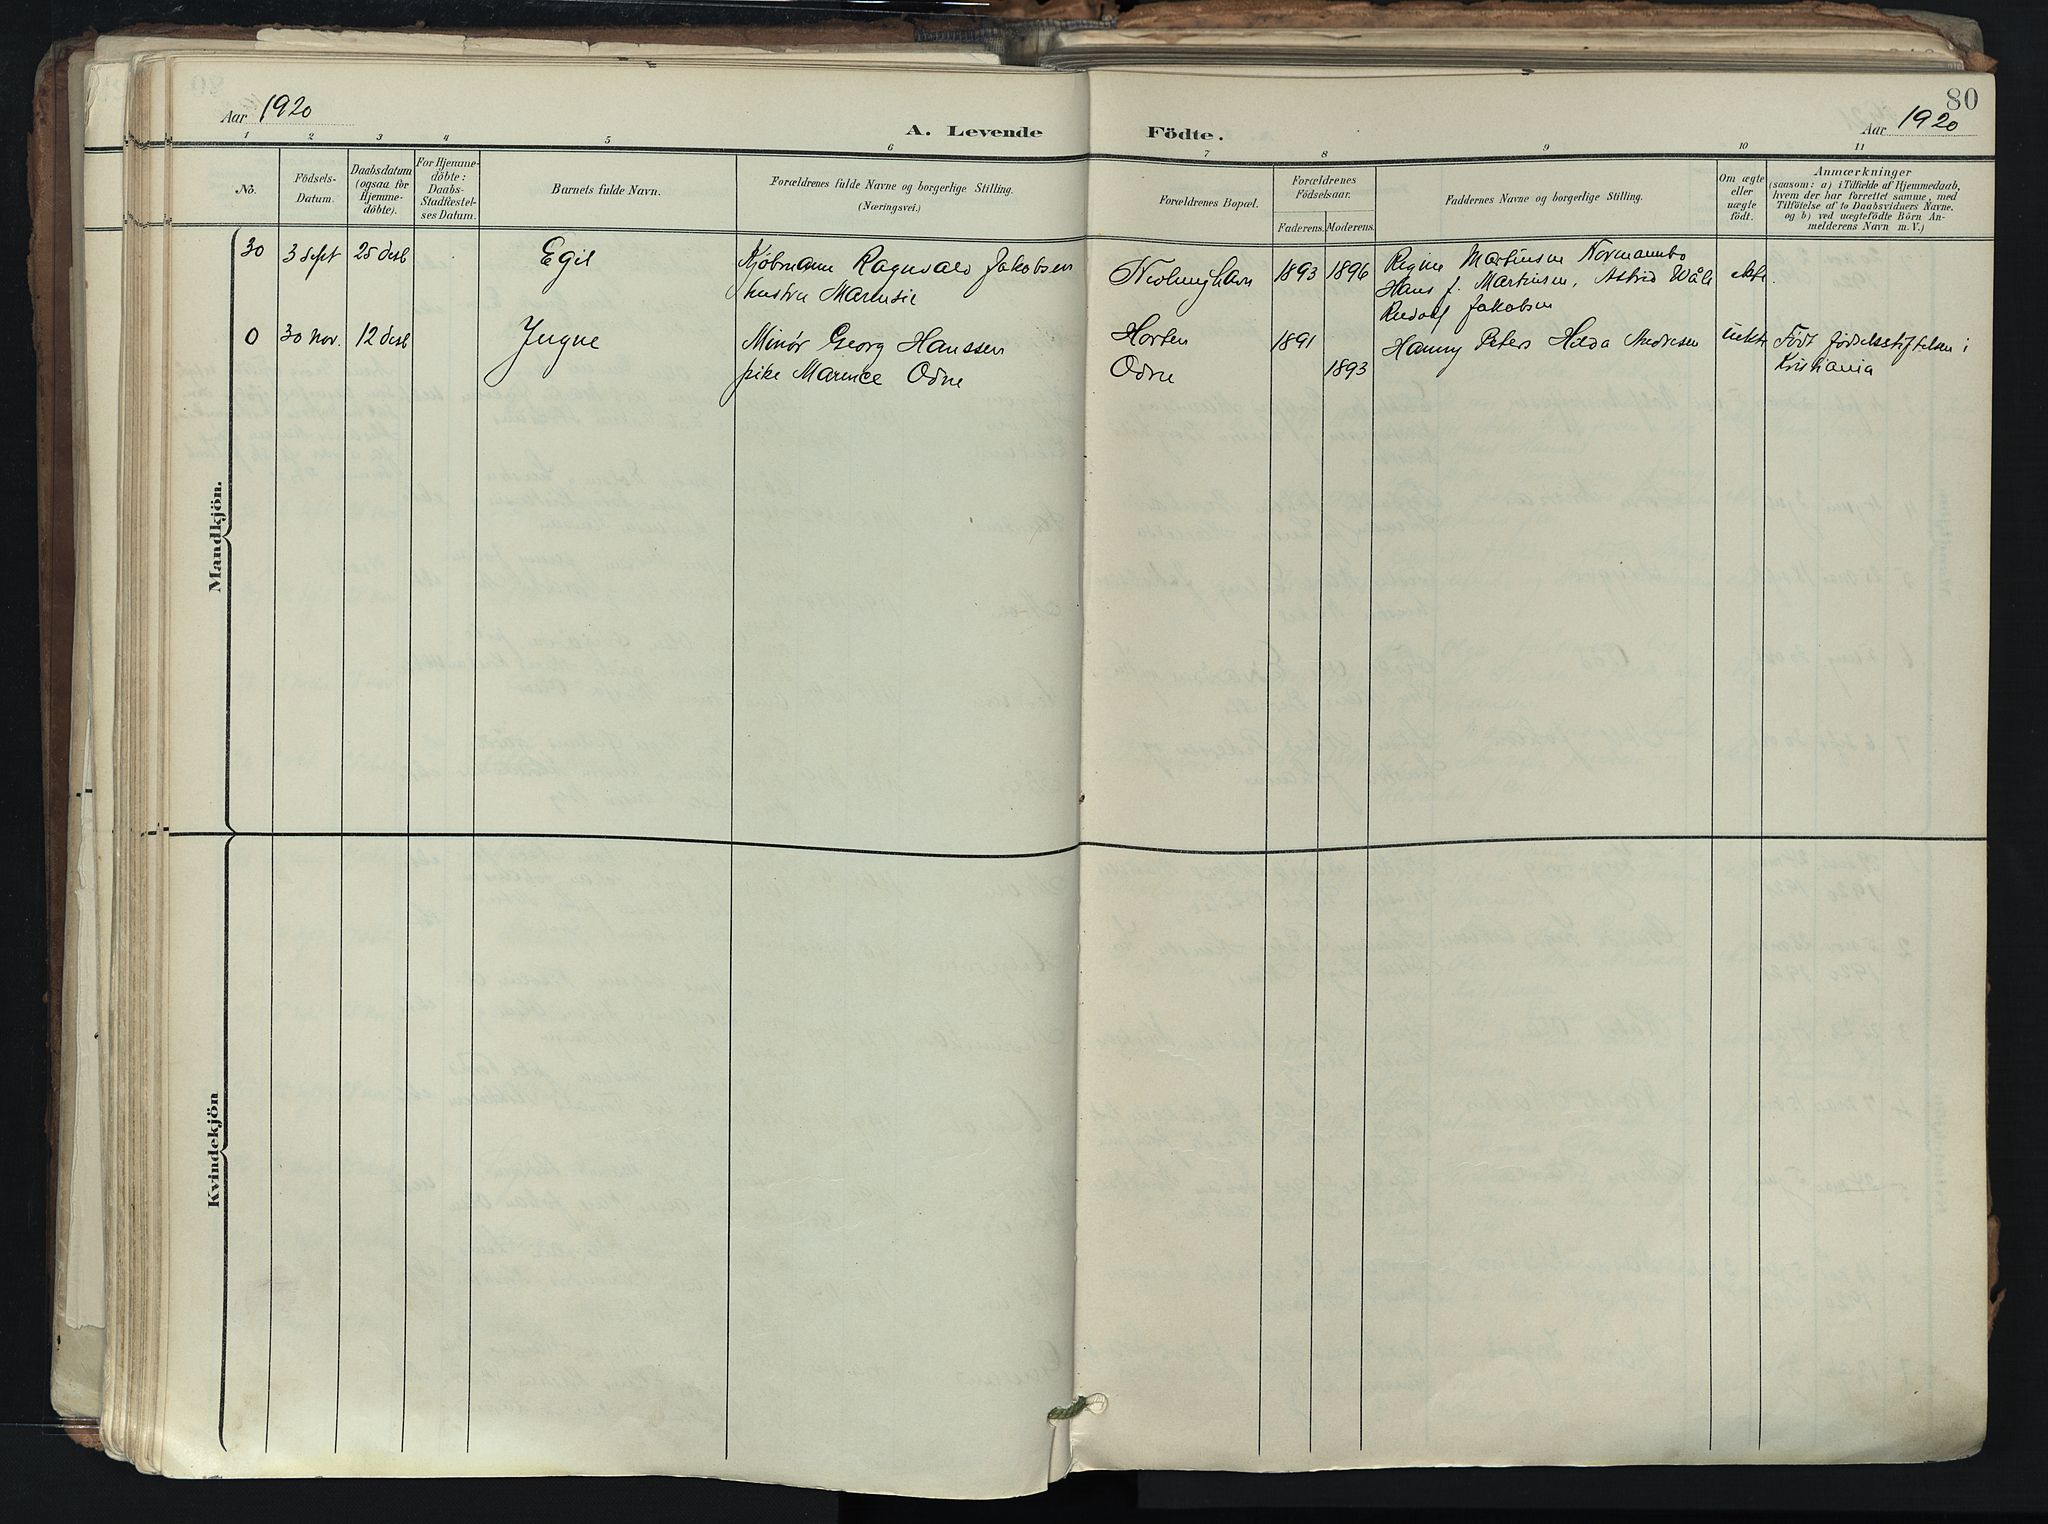 80
Aar 1920
A. Levende Födte.
Aar 1920
1 2 3 4 5 6 7 8 9 10 11
No.
Födsels-Datum.
Daabsdatum (ogsaa for Hjemme-döbte).
For Hjemme-döbte: Daabs-Stadfæstel-ses Datum.
Barnets fulde Navn.
Forældrenes fulde Navne og borgerlige Stilling.
(Næringsvei.)
Forældrenes Bopæl.
Forældrenes Födselsaar.
Faderens. Moderens.
Faddernes Navne og borgerlige Stilling.
Om ægte eller uægte födt.
Anmærkninger
(saasom: a) i Tilfælde af Hjemmedaab,
hvem der har forrettet samme, med
Tilföielse af to Daabsvidners Navne.
og b) ved uægtefödte Börn An-
melderens Navn m. V.)
Mandkjön.
30 3 sept 25 desb Egil Kjøbmann Ragnvald Jakobsen
hustru
Nevlunghavn 1893 1896 Martinsen
Hans J. Martinsen, Astrid
Rudolf Jakobsen
ekte
0 30 nov. 12 desb Yngve Minør Georg Hanssen
pike Odne
Horten 1891
Odne 1893
Hanny Peters Hilda
uekte
Født fødselsstiftelsen i
Kristiania
Kvindekjön